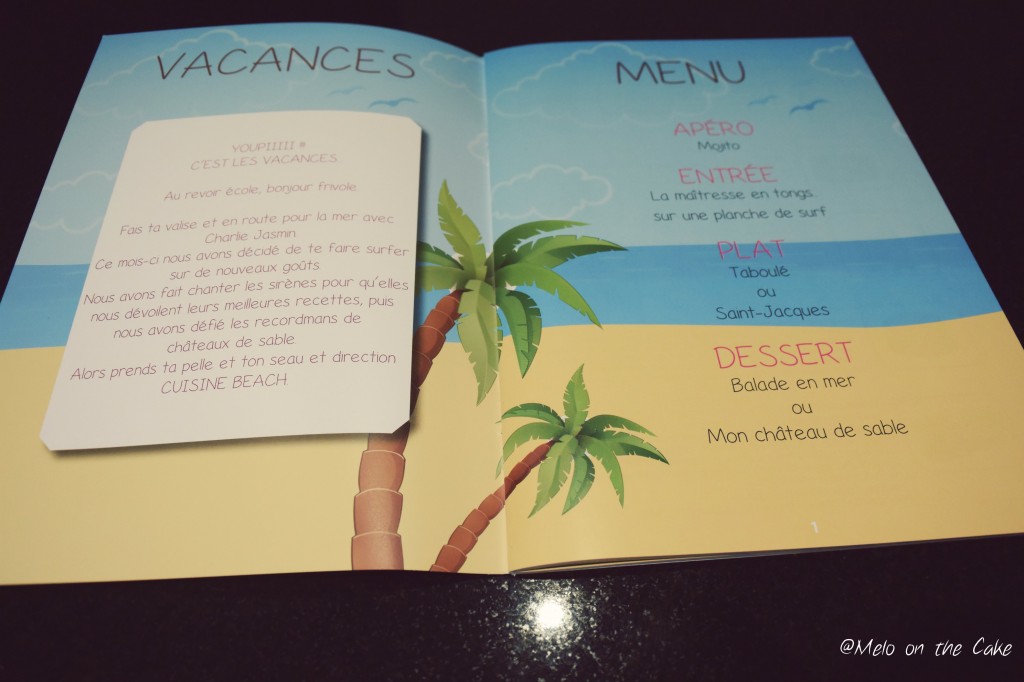 VACANCES
YOUPIIIII !!!
C'EST LES VACANCES.
Au revoir école, bonjour frivole
Fais ta valise et en route pour la mer avec
Charlie Jasmin.
Ce mois-ci nous avons décidé de te faire surfer
sur de nouveaux goûts
Nous avons fait chanter les sirènes pour qu'elles
nous dévoilent leurs meilleures recettes, puis
nous avons défié les recordmans de
châteaux de sable.
Alors prends ta pelle et ton seau et direction
CUISINE BEACH.
MENU
APÉRO
Mojito
ENTRÉE
La maîtresse en tongs...
sur une planche de surf
PLAT
Taboulé
ou
Saint-Jacques
DESSERT
Balade en mer
ou
Mon château de sable
1
@Melo on the Cake